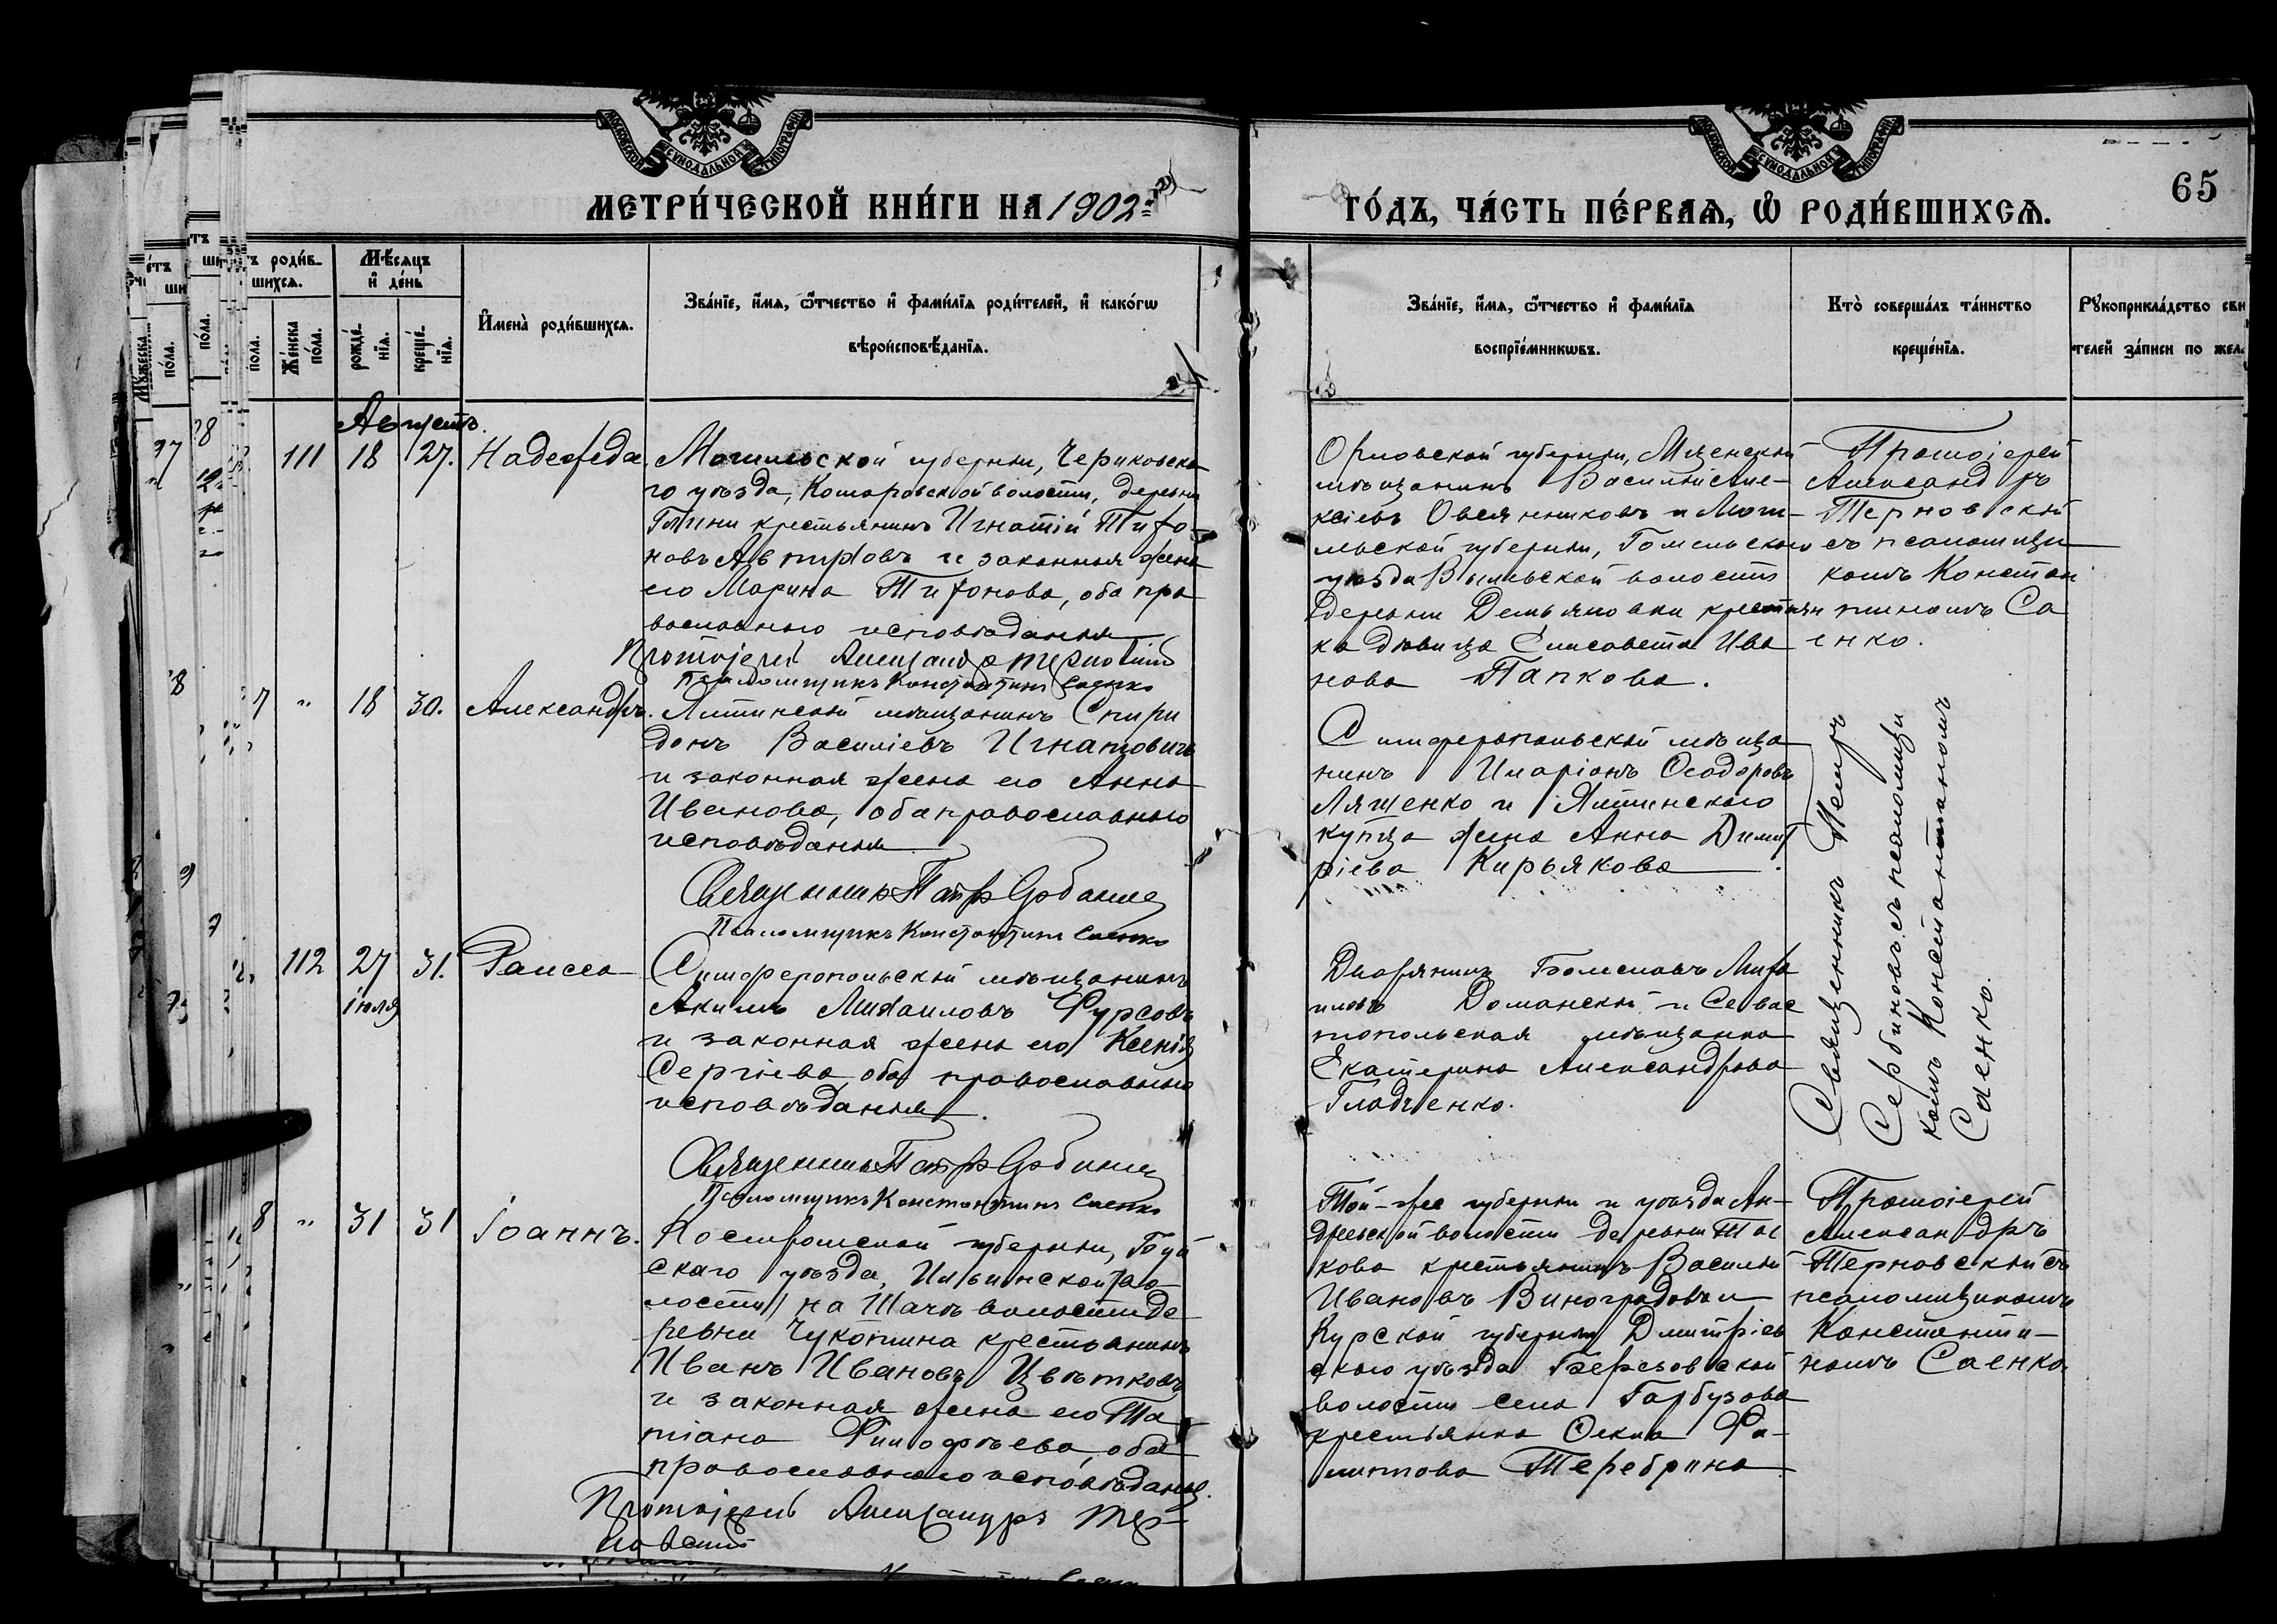 МЕТРИ́ЧЕСКОЙ КНИ́ГИ НА 1902й
ГО́ДЪ, ЧА́СТЬ ПЕ́РВАѦ, Ѡ҆ РОДИ́ВШИХСѦ.
65
роди́в-
шихсѧ.
Мѣ́сѧцъ
и҆ де́нь
Же́нска
по́ла.
рожде́-
нїѧ.
креще́-
нїѧ.
И҆мена̀ роди́вшихсѧ.
Зва́нїе, и҆́мѧ, ѻ҆́тчество и҆ фами́лїѧ роди́телей, и҆ како́гѡ
вѣроисповѣ́данїѧ.
Зва́нїе, и҆́мѧ, ѻ҆́тчество и҆ фами́лїѧ
воспрїе́мникѡвъ.
Кто̀ соверша́лъ та́инство
креще́нїѧ.
Рꙋкоприкла́дство сви
телей за́писи по жела
Августъ.
111 18 27. Надежда.
Могилевской губерніи, Чериковска-
го уѣзда, Комаровской волости, деревни
крестьянинъ Игнатій Тихо-
новъ и законная жена
его Марина Тихонова, оба пра
вославнаго исповѣданія
Протоіерей Александръ Терновскій
Псаломщикъ Константинъ Саенко
Орловской губерніи, Мценскій
мѣщанинъ Василій Але-
ксіевъ Овсянниковъ и Моги-
левской губерніи, Гомельскаго
уѣзда волости
деревни Демьяновки крестьян
ка дѣвица Елисавета Ива
нова Папкова.
Протоіерей
Александръ
Терновскій
съ псаломщи
комъ Констан
тиномъ Са
енко.
7 " 18 30. Александръ.
Ялтинскій мѣщанинъ Спири
донъ Василіевъ Игнатовичъ
и законная жена его Анна
Иванова, оба православнаго
исповѣданія
Священникъ Петръ Сербиновъ
Псаломщикъ Константинъ Саенко
Симферопольскій мѣща
нинъ Иларіонъ Ѳеодоровъ
Лященко и Ялтинскаго
купца жена Анна Димит
ріева Кирьякова.
Священникъ Петръ
Сербиновъ съ псаломщи
комъ Константиномъ
Саенко.
112 27 31. Раисса
іюля
Симферопольскій мѣщанинъ
Акимъ Михаиловъ Фурсовъ
и законная жена его Ксенія
Сергіева, оба православнаго
исповѣданія.
Священникъ Петръ Сербиновъ
Псаломщикъ Константинъ Саенко
Дворянинъ Болеславъ Миха
иловъ Доманскій и Севас
топольская мѣщанка
Екатерина Александрова
Гладченко.
8 " 31 31 Іоаннъ.
Костромской губерніи, Буй
скаго уѣзда, Ильинской во
лости на Шачѣ волости де
ревни Чукотина крестьянинъ
Иванъ Ивановъ Цвѣтковъ
и законная жена его Та
тіана Филофѣева, оба
православнаго исповѣданія.
Протоіерей Александръ Тер-
новскій
Той-же губерніи и уѣзда Ан-
дреевской волости деревни
кова крестьянинъ Василій
Ивановъ Виноградовъ и
Курской губерніи Дмитріев
скаго уѣзда Березовской
волости села Гарбузова
крестьянка Ѳекла Фи-
липпова Теребрина
Протоіерей
Александръ
Терновскій съ
псаломщикомъ
Константи-
номъ Саенко